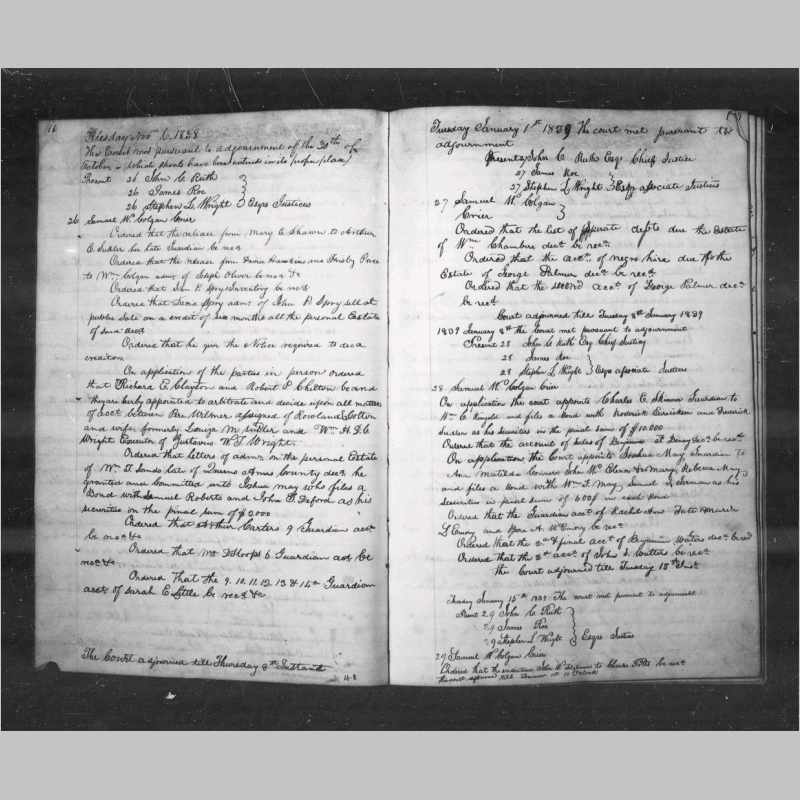 16
Tuesday Novr 6. 1838
The Court met pursuant to adjournment of the 30th of
October
Present 26 John C Ruth
26 James Roe
26 Stephen L. Wright Esqrs Justices
26 Samuel Mc Colgan Crier
Ordered that the release from Mary E Shawn to Arthur
E. Sudler her late Guardian be recd
Ordered that the release from
to Wm Colgan admr of Joseph Oliver be recd &c
Ordered that Jon P. Spry Inventory be recd
Ordered that Spry admr of John P Spry sell at
public Sale on a credit of six months all the personal Estate
of said decd
Ordered that he give the Notice required to decd
creditors
On application of the parties in person ordered
that Richard E. Clayton and Robert P. Chilton be and
they are hereby appointed to arbitrate and decide upon all matters
of acct between Per Wilmer assigned of Rowland Cotton
and wife formerly Louiza M Sudler and Wm H. D. C.
Wright Executor of Gustavus W. T. Wright.
Ordered that letters of admn on the personal Estate
of Wm T. Sands late of Queens Anns County decd be
granted and committed unto Joshua May who files a
Bond with Samuel Roberts and John T. Deford as his
securities on the pinal sum of $2,000
Ordered that Arthur Carters 9 Guardian acct
be recd &c
Ordered that Mr. D Hoops 6 Guardian act be
recd &c.
Ordered That the 9. 10. 11. 12. 13 & 14th Guardian
accts of Sarah E Little be recd &c
The Court adjourned till Thursday 8th Instant
Tuesday January 1st 1839 The court met pursuant to
adjournment
Present 27 John C Ruth Esqr Chief Justice
27 James Roe
27 Stephen L Wright Esqrs associate Justices
27 Samuel Mc Colgan
Crier
Ordered that the List of Sperate debts due the Estate
of Wm Chambers decd be recd
Ordered that the acct of negro hire due for the
Estate of George Palmer decd be recd
Ordered that the second acct of George Palmer decd
be recd
Court adjourned till Tuesday 8th January 1839
1839 January 8th the Court met pursuant to adjournment
Present 28 John C Ruth Esq Chief Justice
28 James Roe
28 Stephen L Wright Esqrs associate Justices
28 Samuel Mc Colgan Crier
On application the court appoints Charles C. Skinner Guardian to
Wm C Knight and files a bond with Frederick and Frederick
as his securities in the pinal sum of $10.000
Ordered that the account of sales of Benjamin decd be recd
On application the Court appoints Joshua May Guardian to
Ann Matilda John Mc Clean & Mary Rebecca May
and files a Bond with Wm T. May, Samuel as his
Securities in pinal sum of 600$ in each bond
Ordered that the Guardian acct of Rachel Ann Tate &
L Emory and A. Mc Emory be recd
Ordered that the 2d & final acct of Benjamin Walters decd be recd
Ordered that the 2d acct of John S. Walters be recd
The Court adjourned till Tuesday 15th Inst
Tuesday January 15th 1839 The court met pursuant to adjournment
Present 29 John C Ruth
29 James Roe
29 Stephen L Wright Esqrs Justices
29 Samuel Mc Colgan Crier
Ordered that the John to Charles be recd
The court adjourned till